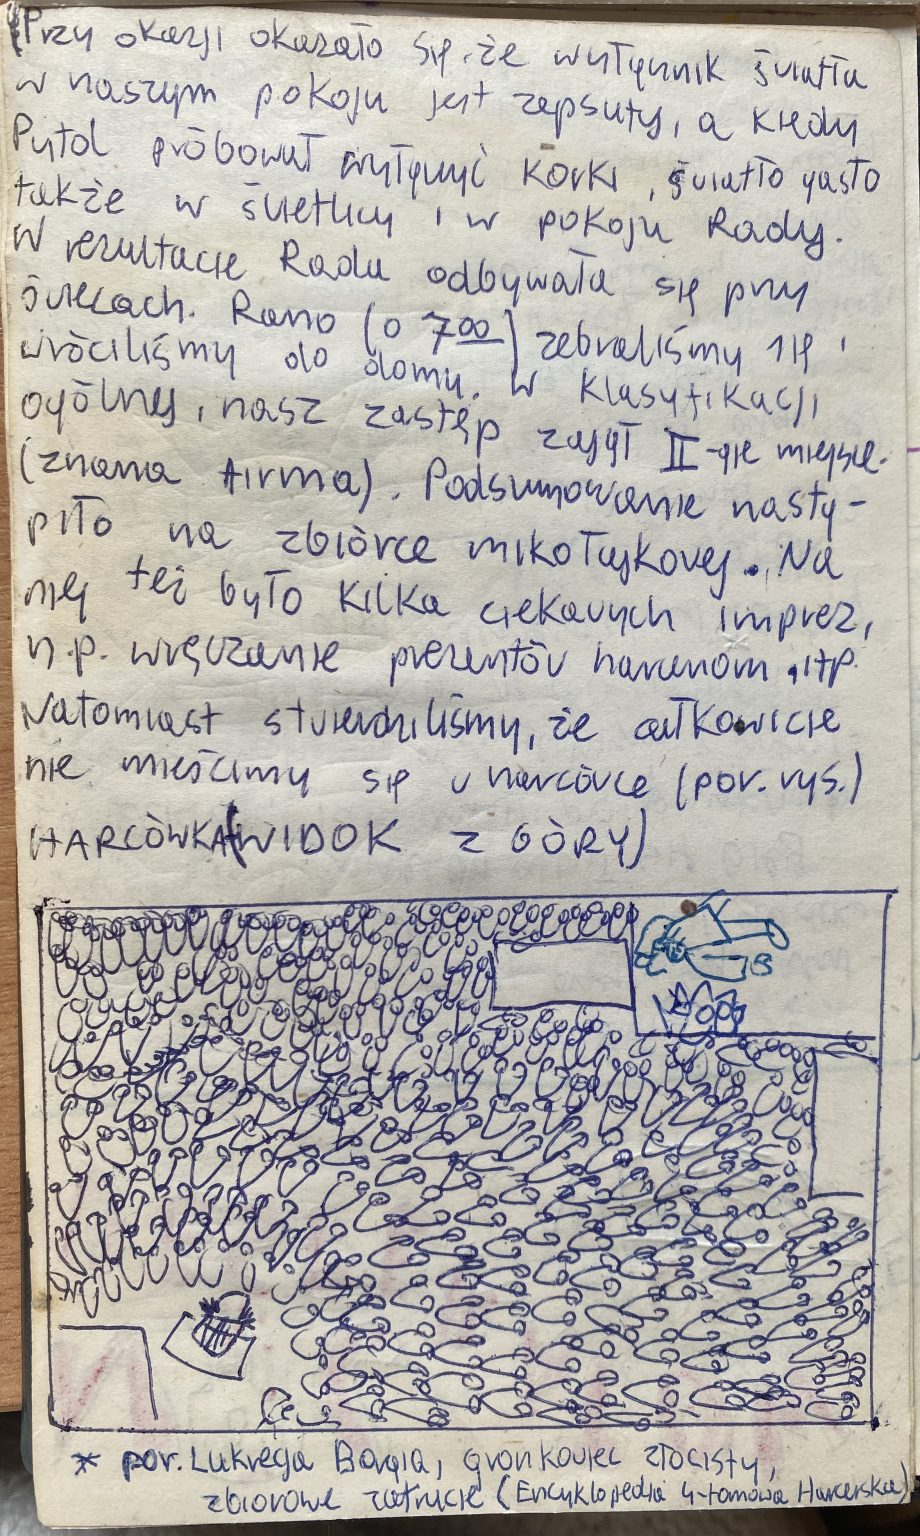 Przy okazji okazało się, że wyłącznik światła
w naszym pokoju jest zepsuty, a kiedy
Pytol próbował wyłączyć korki, światło gasło
także w świetlicy i w pokoju Rady.
W rezultacie Rada odbywała się przy
świecach. Rano (o 7⁰⁰) zebraliśmy się i
wróciliśmy do domu. W klasyfikacji
ogólnej, nasz zastęp zajął II-gie miejsce.
(znana firma). Podsumowanie nastą-
piło na zbiórce mikołajkowej. Na
niej też było kilka ciekawych imprez,
n.p. wręczanie prezentów harcerzom, itp.
Natomiast stwierdziliśmy, że całkowicie
nie mieścimy się w harcówce (por. rys.)
HARCÓWKA (WIDOK Z GÓRY)
* por. Lukrecja Borgia, gronkowiec złocisty,
zbiorowe zatrucie (Encyklopedia 4-tomowa Harcerska)